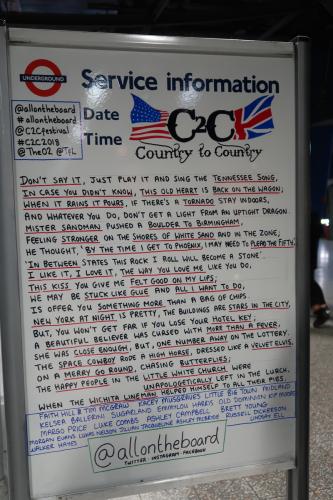 UNDERGROUND
Service information
@allontheboard
#allontheboard
@C2Cfestival
#C2C2018
@TheO2 @TfL
Date
Time
C2C
Country to Country
DON'T SAY IT, JUST PLAY IT AND SING THE TENNESSEE SONG,
IN CASE YOU DIDN'T KNOW, THIS OLD HEART IS BACK ON THE WAGON;
WHEN IT RAINS IT POURS, IF THERE'S A TORNADO STAY INDOORS,
AND WHATEVER YOU DO, DON'T GET A LIGHT FROM AN UPTIGHT DRAGON.
MISTER SANDMAN PUSHED A BOULDER TO BIRMINGHAM,
FEELING STRONGER ON THE SHORES OF WHITE SAND AND IN THE ZONE;
HE THOUGHT, 'BY THE TIME I GET TO PHOENIX, I MAY NEED TO PLEAD THE FIFTH,
'IN BETWEEN STATES THIS ROCK I ROLL WILL BECOME A STONE'.
I LIKE IT, I LOVE IT, THE WAY YOU LOVE ME LIKE YOU DO,
THIS KISS YOU GIVE ME FELT GOOD ON MY LIPS;
WE MAY BE STUCK LIKE GLUE AND ALL I WANT TO DO,
IS OFFER YOU SOMETHING MORE THAN A BAG OF CHIPS.
NEW YORK AT NIGHT IS PRETTY, THE BUILDINGS ARE STARS IN THE CITY,
BUT, YOU WON'T GET FAR IF YOU LOSE YOUR HOTEL KEY.
A BEAUTIFUL BELIEVER WAS CURSED WITH MORE THAN A FEVER,
SHE WAS CLOSE ENOUGH, BUT, ONE NUMBER AWAY ON THE LOTTERY.
THE SPACE COWBOY RODE A HIGH HORSE, DRESSED LIKE A VELVET ELVIS,
ON A MERRY GO ROUND, CHASING BUTTERFLIES;
THE HAPPY PEOPLE IN THE LITTLE WHITE CHURCH WERE
UNAPOLOGETICALLY LEFT IN THE LURCH,
WHEN THE WICHITA LINEMAN HELPED HIMSELF TO ALL THEIR PIES.
FAITH HILL & TIM MCGRAW KACEY MUSGRAVES LITTLE BIG TOWN MIDLAND
KELSEA BALLERINI SUGARLAND EMMYLOU HARRIS OLD DOMINION KIP MOORE
MARGO PRICE LUKE COMBS ASHLEY CAMPBELL BRETT YOUNG
MORGAN EVANS LUKAS NELSON JILLIAN JACQUELINE ASHLEY MCBRYDE RUSSELL DICKERSON
WALKER HAYES
@allontheboard
TWITTER INSTAGRAM FACEBOOK